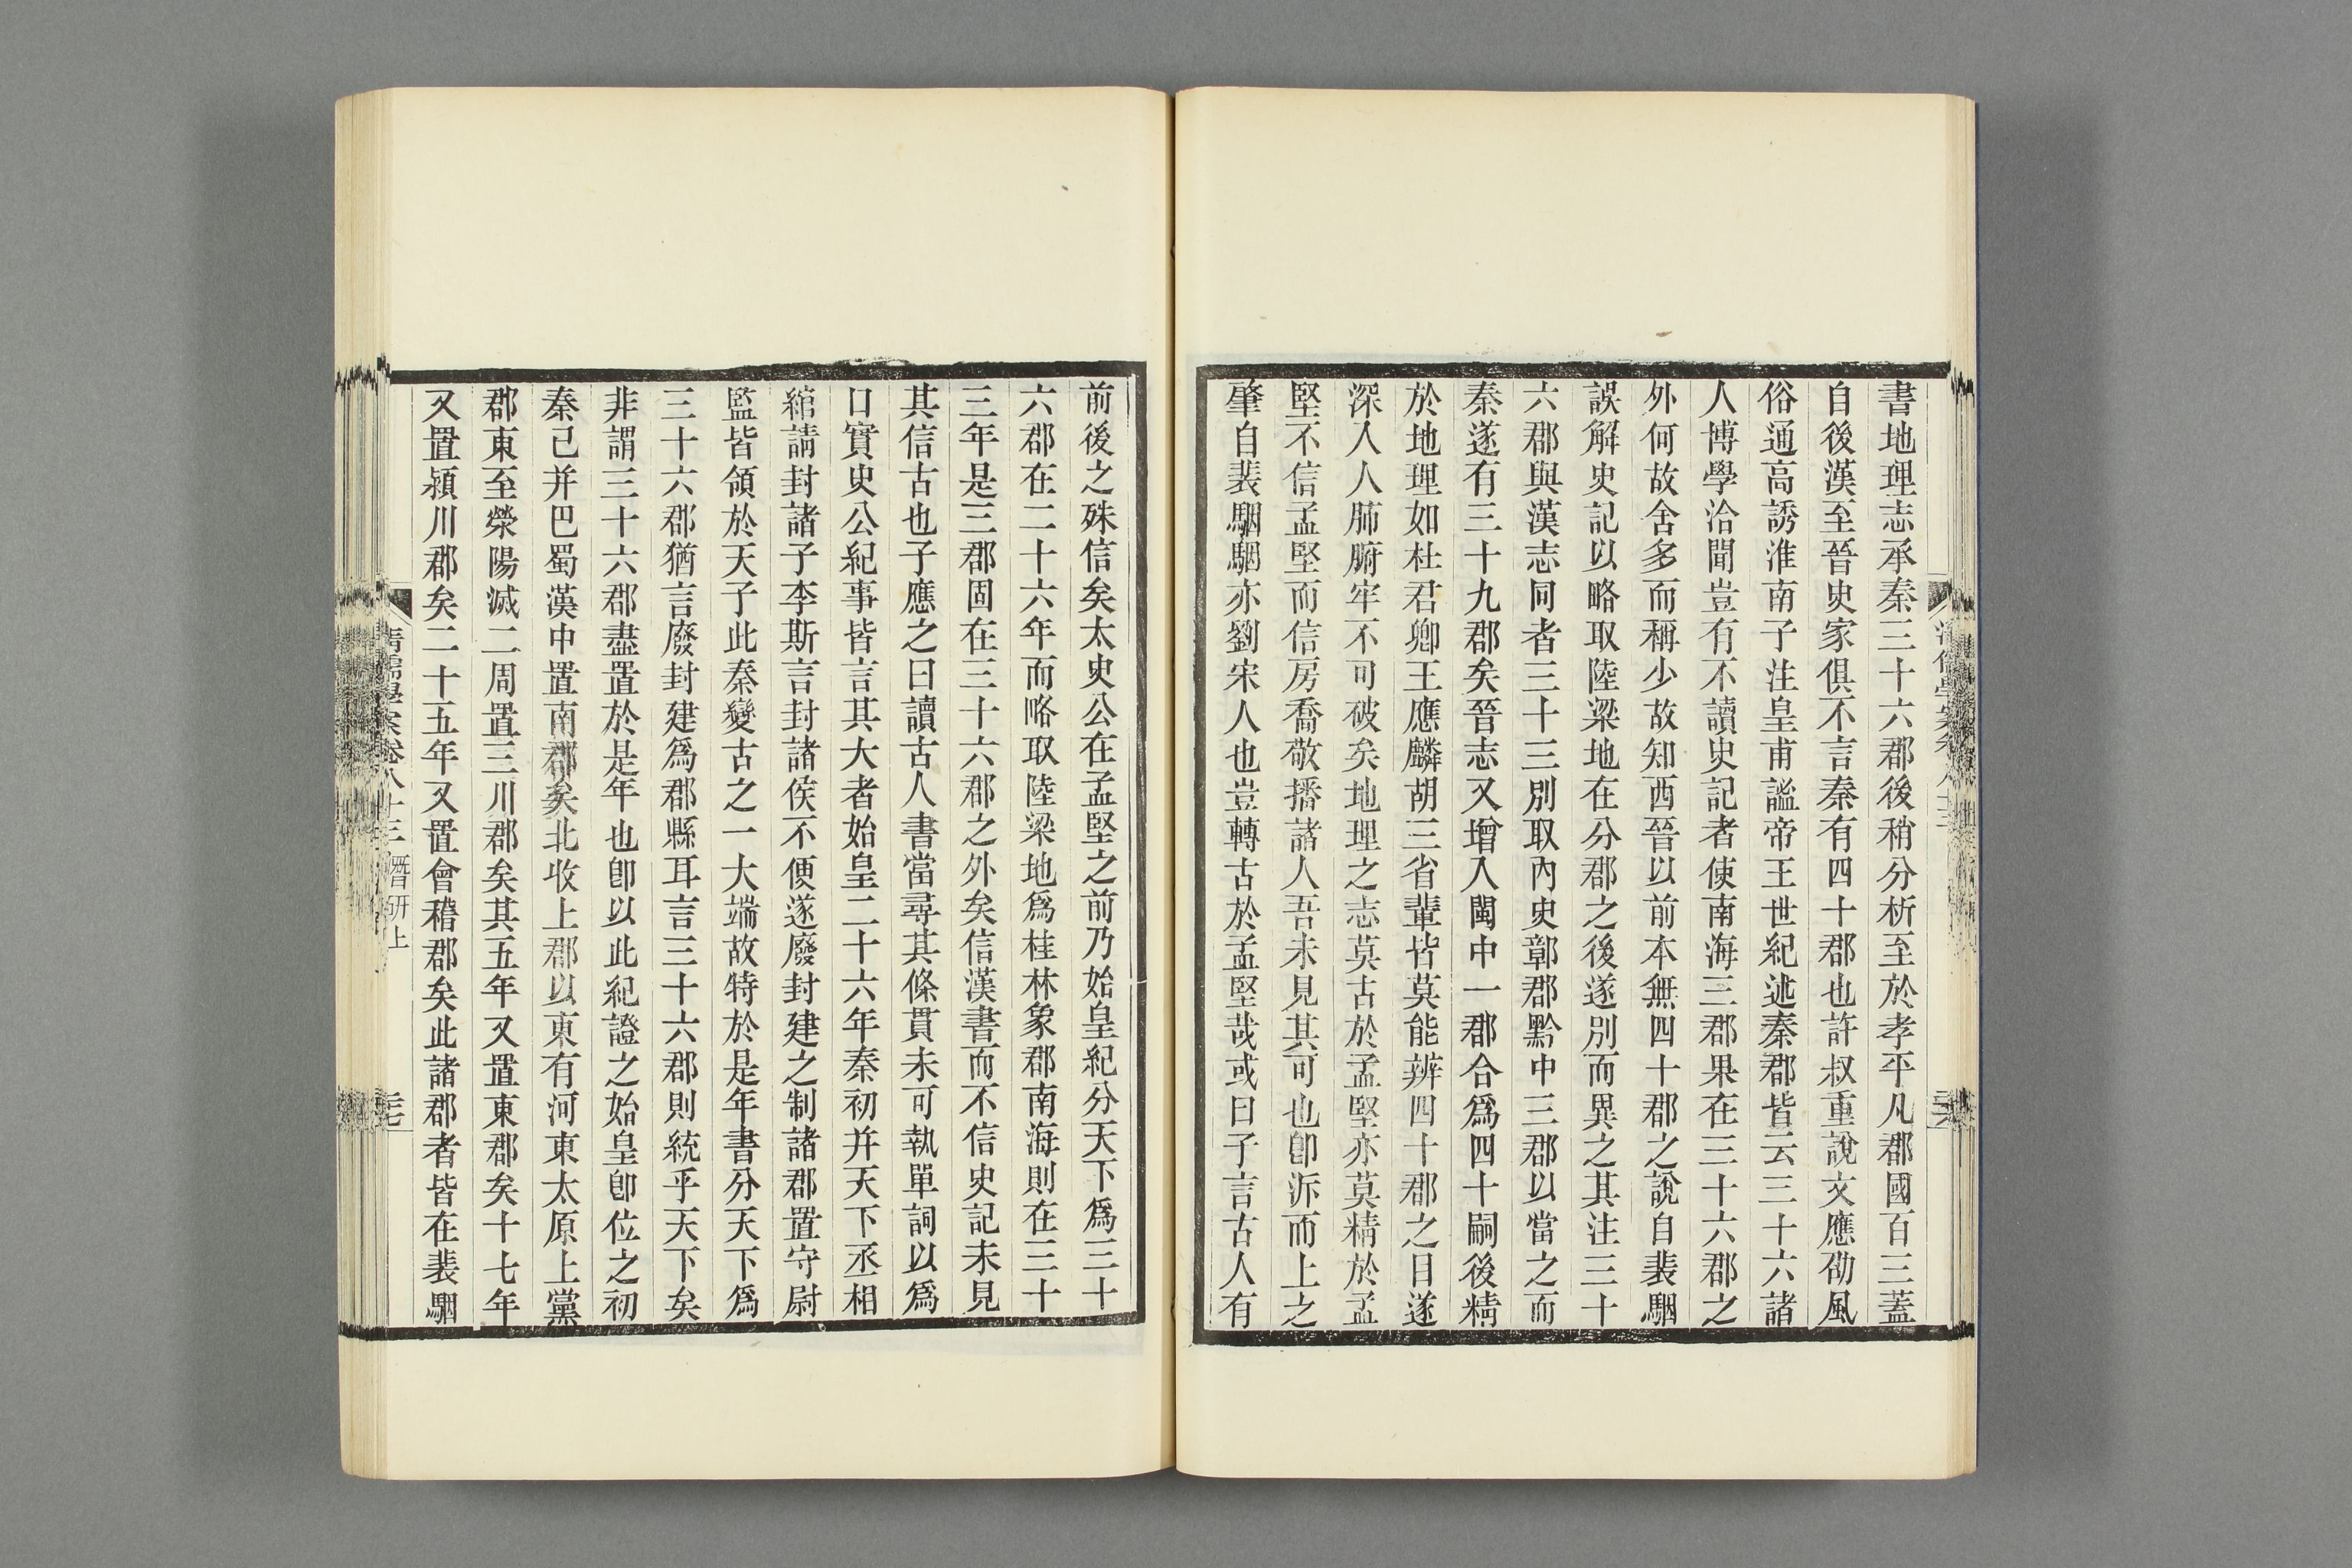 書地理志承秦三十六郡後稍分析至於孝平凡郡國百三蓋
自後漢至晉史家俱不言秦有四十郡也許叔重說文應劭風
俗通高誘淮南子注皇甫謐帝王世紀述秦郡皆云三十六諸
人博學洽聞豈有不讀史記者使南海三郡果在三十六郡之
外何故舍多而稱少故知西晉以前本無四十郡之說自裴駰
誤解史記以略取陸梁地在分郡之後遂別而異之其注三十
六郡與漢志同者三十三別取內史鄣郡黔中三郡以當之而
秦遂有三十九郡矣晉志又增入閩中一郡合爲四十嗣後精
於地理如杜君卿王應麟胡三省輩皆莫能辨四十郡之目遂
深入人肺腑牢不可破矣地理之志莫古於孟堅亦莫精於孟
堅不信孟堅而信房喬敬播諸人吾未見其可也卽泝而上之
肇自裴駰駰亦劉宋人也豈轉古於孟堅哉或曰子言古人有
前後之殊信矣太史公在孟堅之前乃始皇紀分天下爲三十
六郡在二十六年而略取陸梁地爲桂林象郡南海則在三十
三年是三郡固在三十六郡之外矣信漢書而不信史記未見
其信古也子應之曰讀古人書當尋其條貫未可執單詞以爲
口實史公紀事皆言其大者始皇二十六年秦初并天下丞相
綰請封諸子李斯言封諸侯不便遂廢封建之制諸郡置守尉
監皆領於天子此秦變古之一大端故特於是年書分天下爲
三十六郡猶言廢封建爲郡縣耳言三十六郡則統乎天下矣
非謂三十六郡盡置於是年也卽以此紀證之始皇卽位之初
秦已并巴蜀漢中置南郡矣北收上郡以東有河東太原上黨
郡東至滎陽滅二周置三川郡矣其五年又置東郡矣十七年
又置潁川郡矣二十五年又置會稽郡矣此諸郡者皆在裴駰
清儒學案卷八十三 潛研上